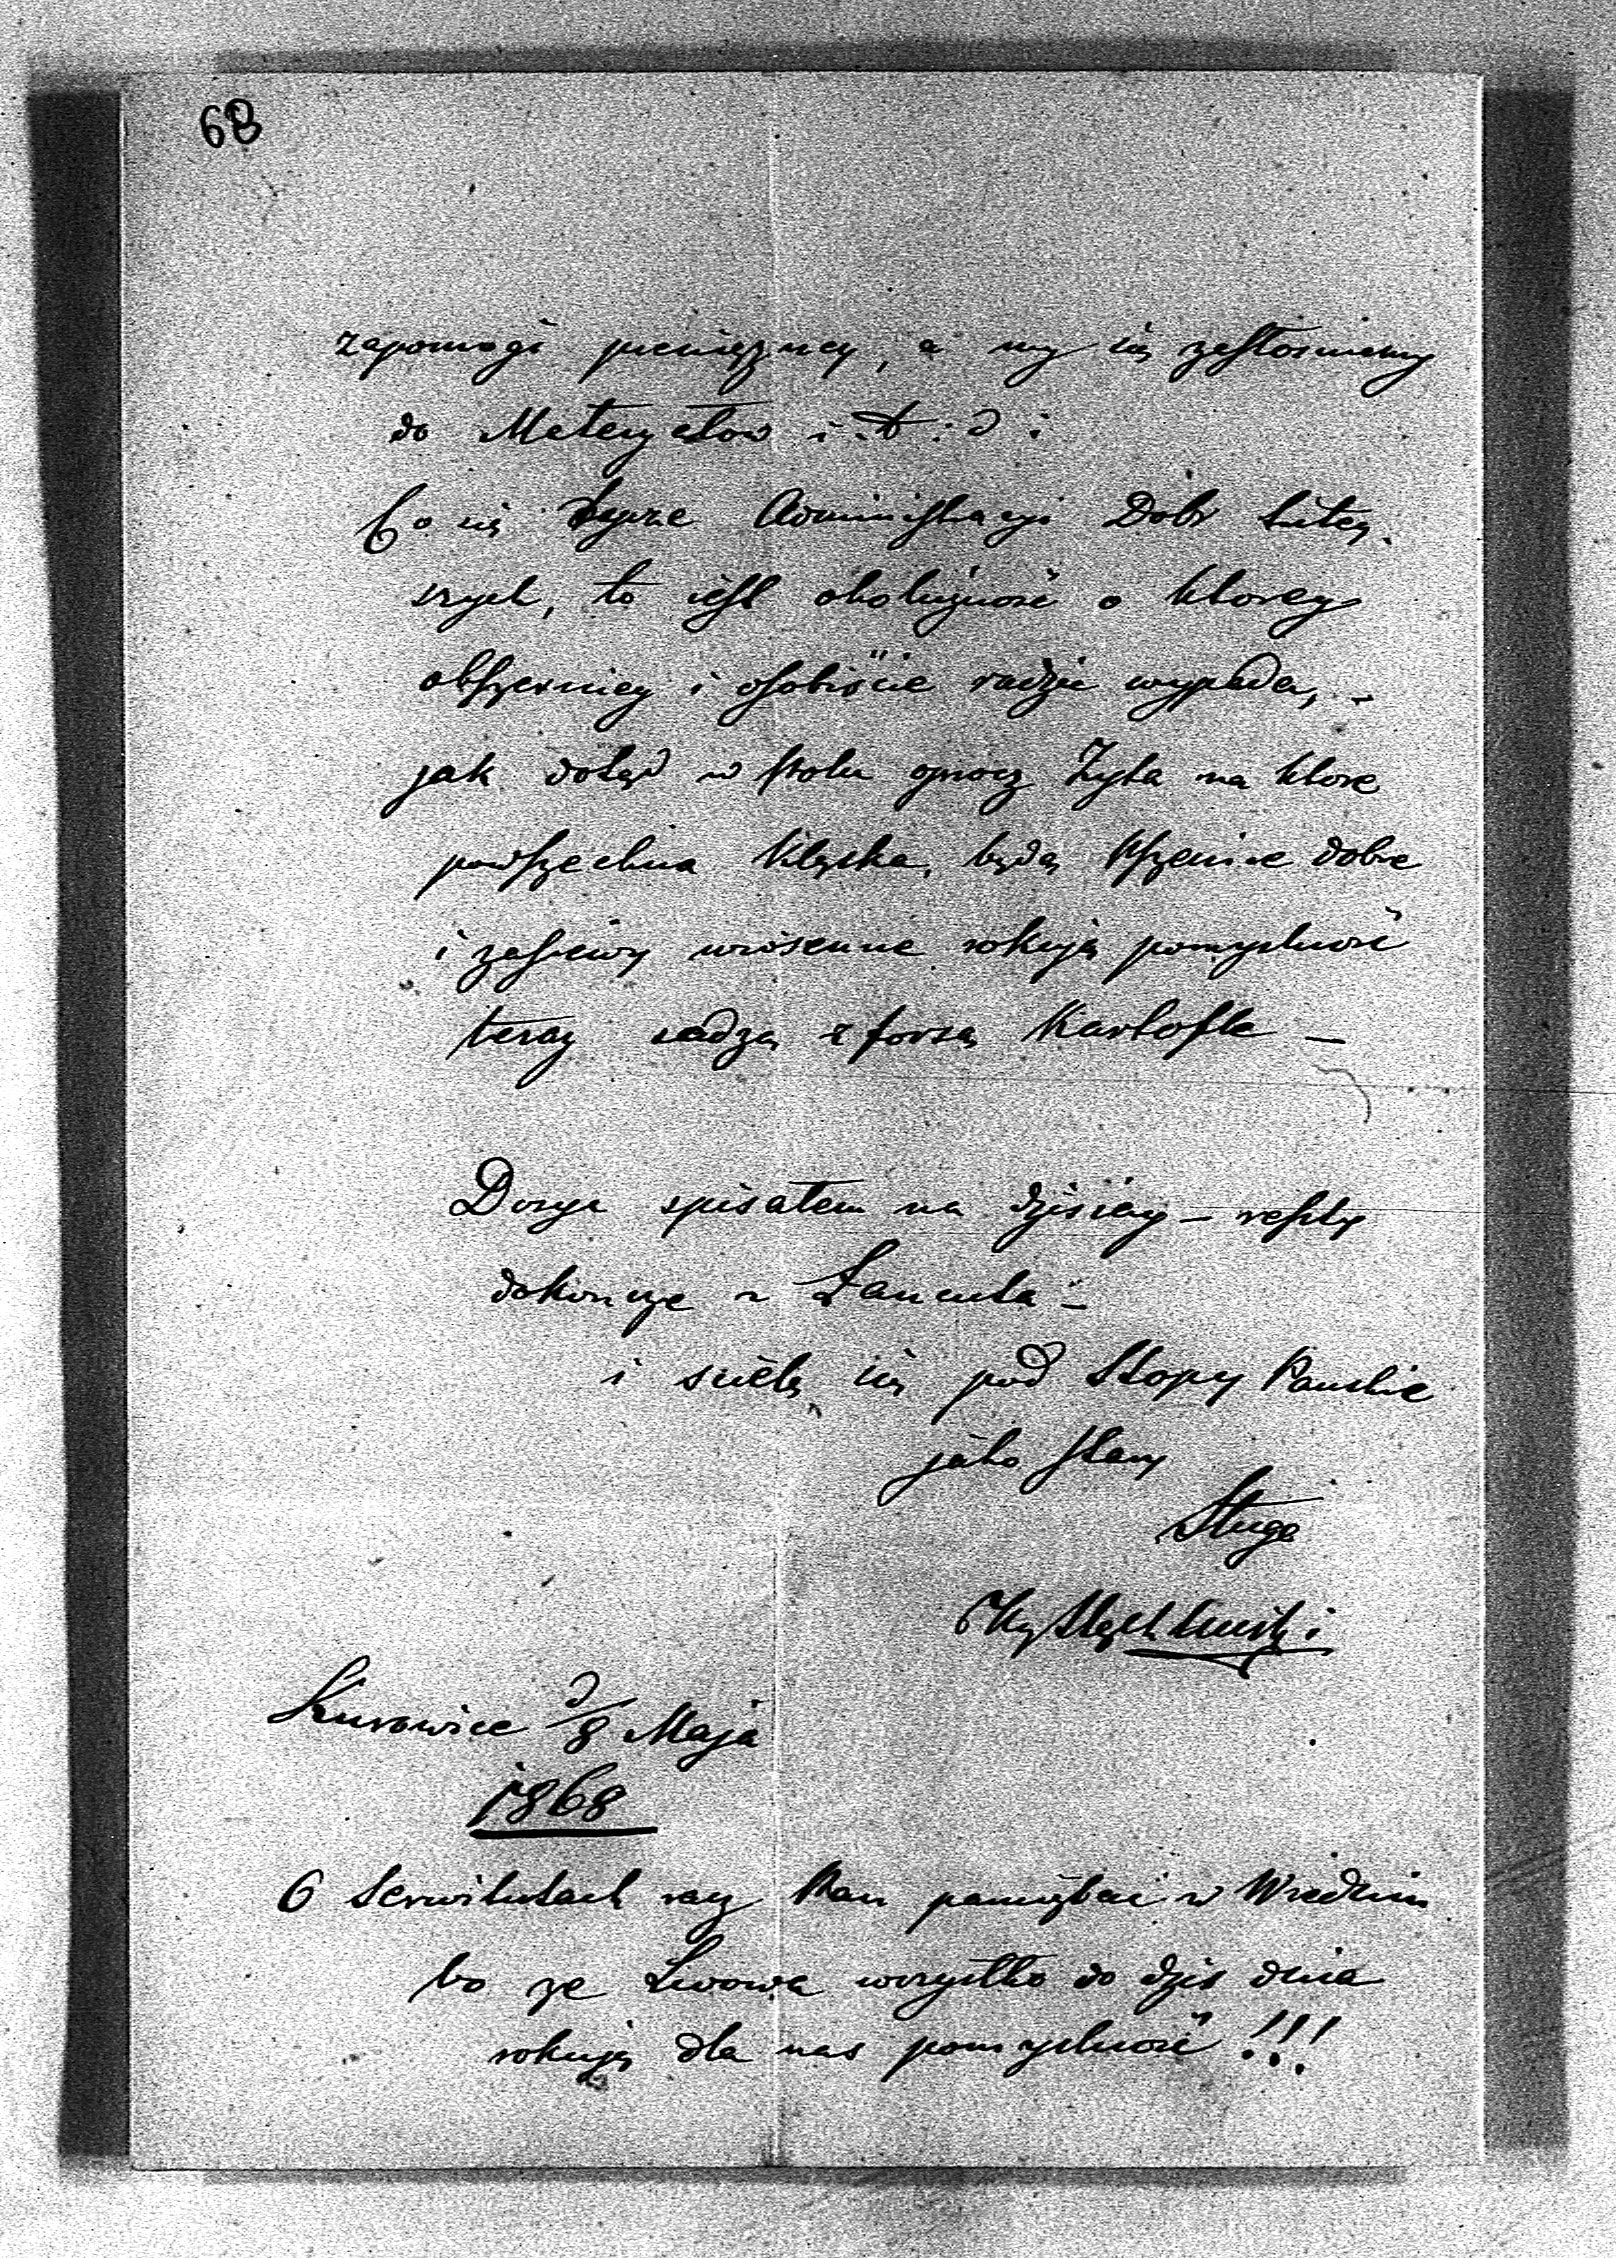 68
zapomogi pieniężney, a my się zastosuiemy
do Meteryałow i. t. d:
Co się tycze Administracyi Dobr tutey.
szych, to iest okoliczność o ktorey
obszerniey i osobiście radzić wypada, –
jak dotąd w polu oprocz Żyta na ktore
powszechna klęska, będą Pszenice dobre
i zasiewy wiosenne rokują pomyslność
teraz sadzą z forsą Kartofle –
Dosyć spisałem na dzisiay – reszty
dokończę z Łancuta –
i scielę się pod Stopy Pańskie
jako stary
Sługa
Kurowice d/8 Maja
1868
O Serwitutach racz Pan pamiętać w Wiedniu
bo ze Lwowa wszystko do dzis dnia
rokują dla nas pomyslność !!!